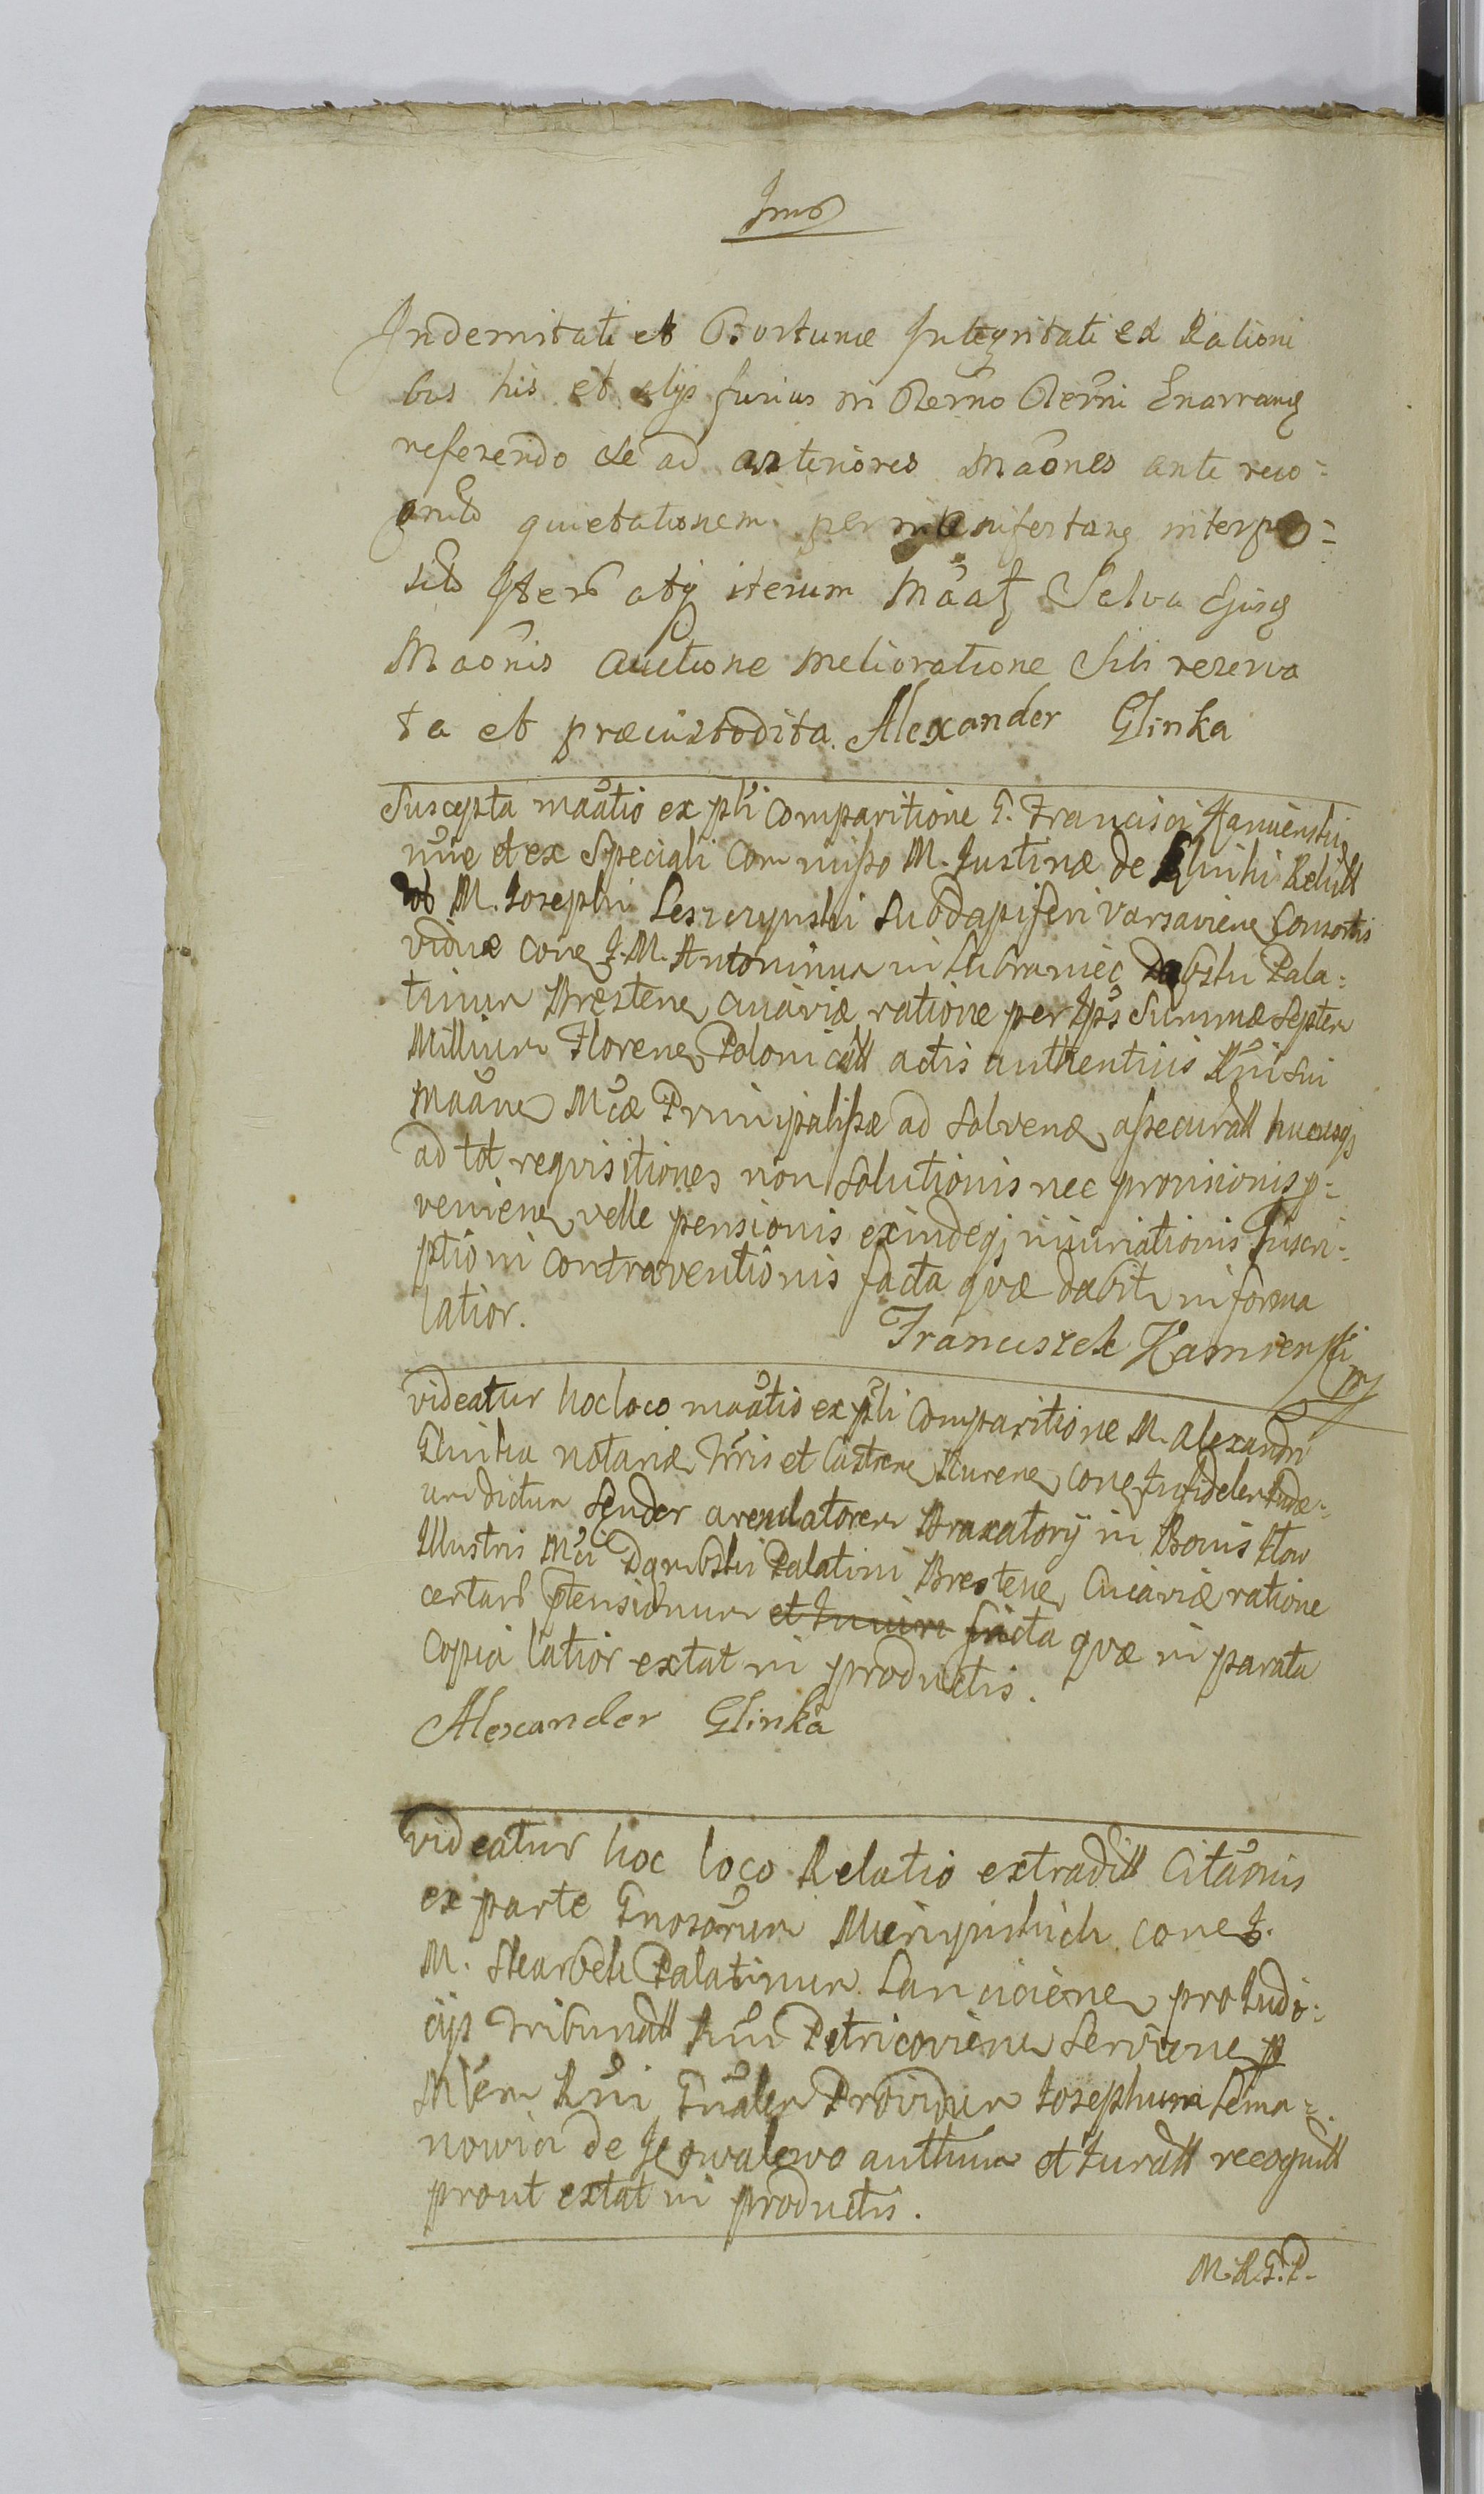 Imo
Indemnitati et Fortunæ Integritati ex Rationi
bus his et alijs furius in Termo Termi Enarrand
referendo se ad anteriores Mãones ante reco=
gnit quietationem per manifestang interpo=
sit Iterũ atq iterum Mãat Salva Ejusq
Mãonis auctione melioratione sibi reserva
ta et præcustodita. Alexander Glinka
Suscepta maãtio ex pli Comparitione G. Francisci Kamienski
nõie et ex Speciali Commisso M. Justinæ de Glinki Relict
ob M. Josephi Leszczynski Subdapiferi Varsaviens Consortis
viduæ cone J. M. Antoninum in Lubraniec Dąbski Pala=
tinum Brestens Cuiaviæ ratione per Ips Summæ Septem
Millium Florenor Polonicall actis authentius Rni sui
Maãne Mcæ Principalissæ ad Solvend assecuratt hucusq
ad tot requisitiones non Solutionis nec provisionis p=
venien velle pensionis exindeq injuriationis Inscri=
ptioni contraventionis facta quæ dabitr in forma
latior.
Franciszek Kamienski
mp
videatur hoc loco maãtio ex pli Comparitione M. Alexandri
Glinka notarie Trris et Castrens cone Infidelem Judæ=
um dictum Sender arendatorem Braxatorij in Bonis
Illustris Mci Dąmbski Palatini Brestens Cuiaviæ ratione
certarũ ptensionum et Iniuri facta quæ in parata
copia latior extat in productis.
Alexander Glinka
videatur hoc loco Relatio extradit Citãonis
ex parte Gnosorum Mierzynskich cone J.
M. Skarbek Palatinum Lanciciens pro Judi=
cijs Tribunall Rni Petricoviens Serviens p
Mrem Rni Gnãlem Providum Josephum Sema=
nowicz de Kowalewo authum et Juratt recognitt
prout extat in productis.
M.R.G.P.